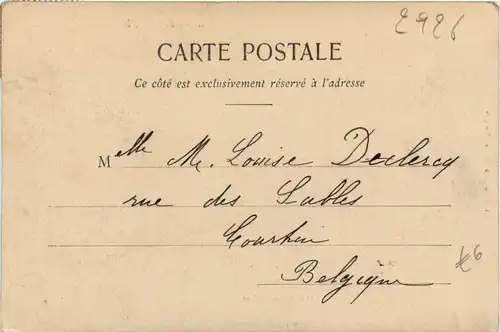 2926
CARTE POSTALE
Ce côté est exclusivement réservé à l'adresse
Melle M. Louise Declercq
rue des Sables
Courtrai
Belgique
€6